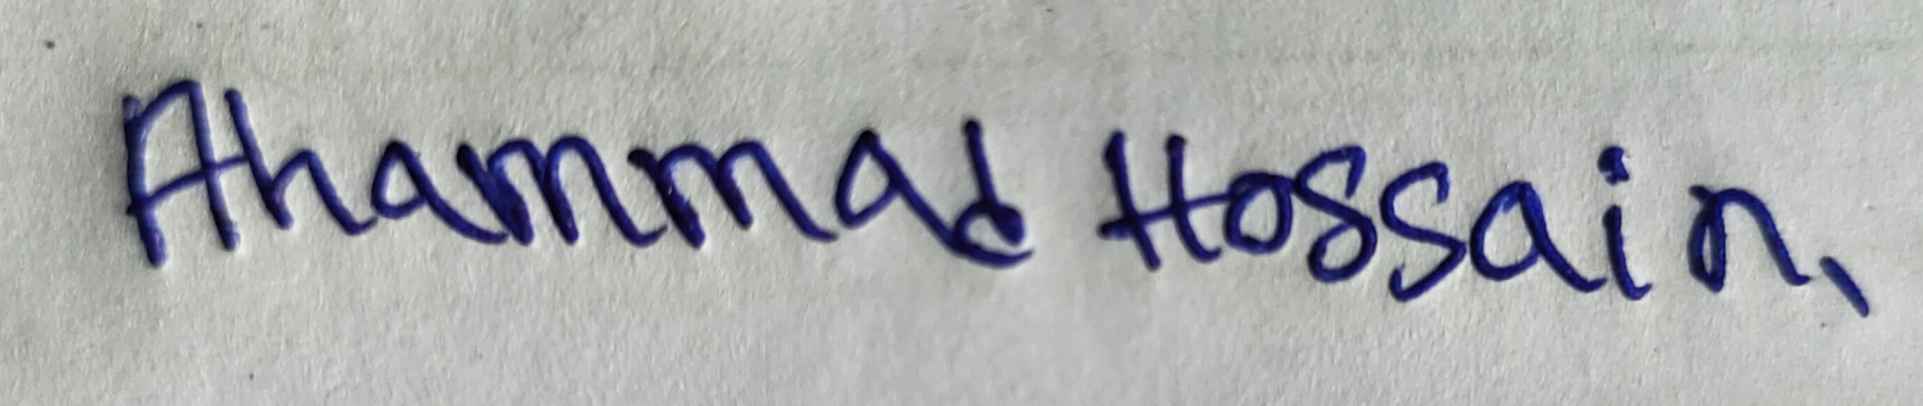 Ahammad Hossain,